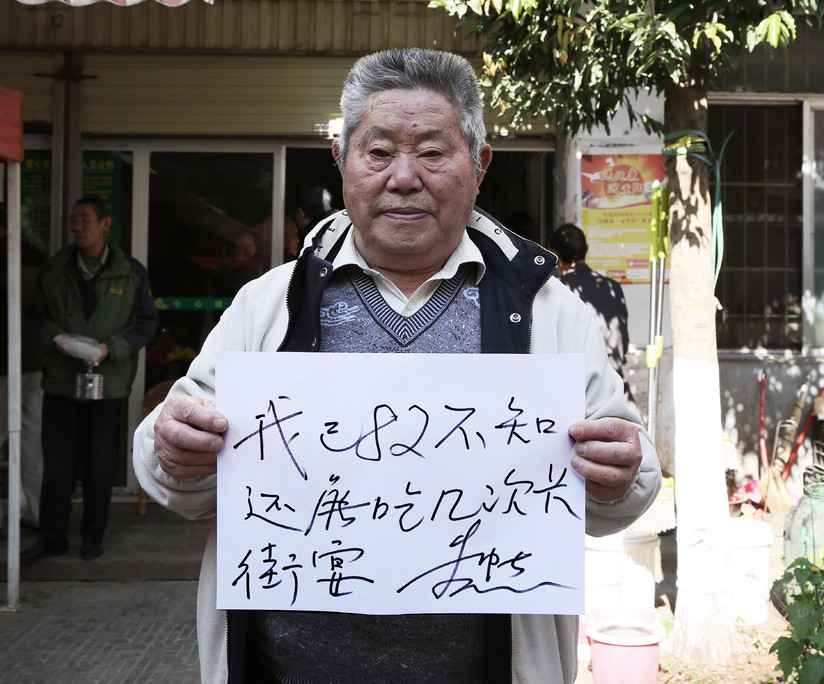 我已82不知
还能吃几次长
街宴
小心